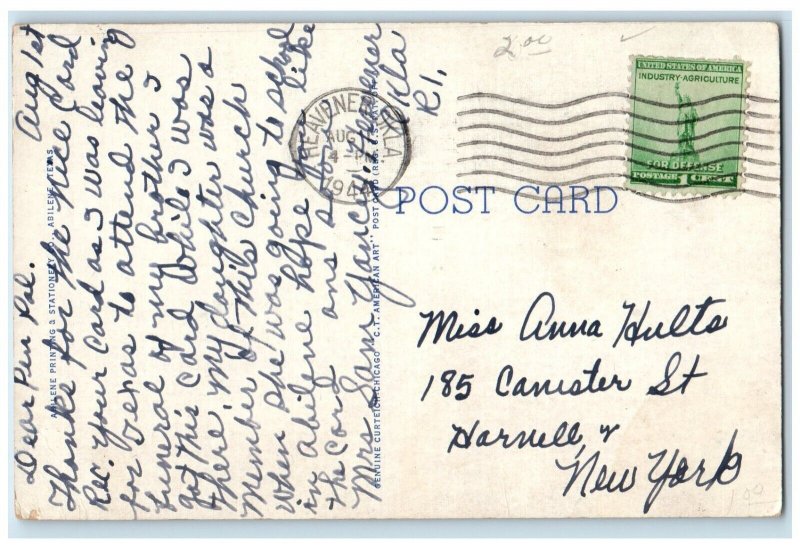 Dear Pen Pal.    Aug 1st
Thanks for the nice Card
Rec. your Card as I was leaving
for Texas to attend the
funeral of my brother I
got this Card while I was
there. My daughter was a
Member of this Church
when she was going to school
in Abilene hope you like
the Card ans soon
Mrs Sam Yancey, Heavener
Okla
R1,
ABILENE PRINTING & STATIONERY CO., ABILENE, TEXAS
GENUINE CURTEICH-CHICAGO "C.T. AMERICAN ART" POST CARD (REG. U.S.
HEAVENER OKLA.
AUG
4 - PM
1944
2.00
UNITED STATES OF AMERICA
INDUSTRY-AGRICULTURE
FOR DEFENSE
POSTAGE 1 CENT
POST CARD
Miss Anna Hults
185 Canister St
Hornell,
New York
1.00